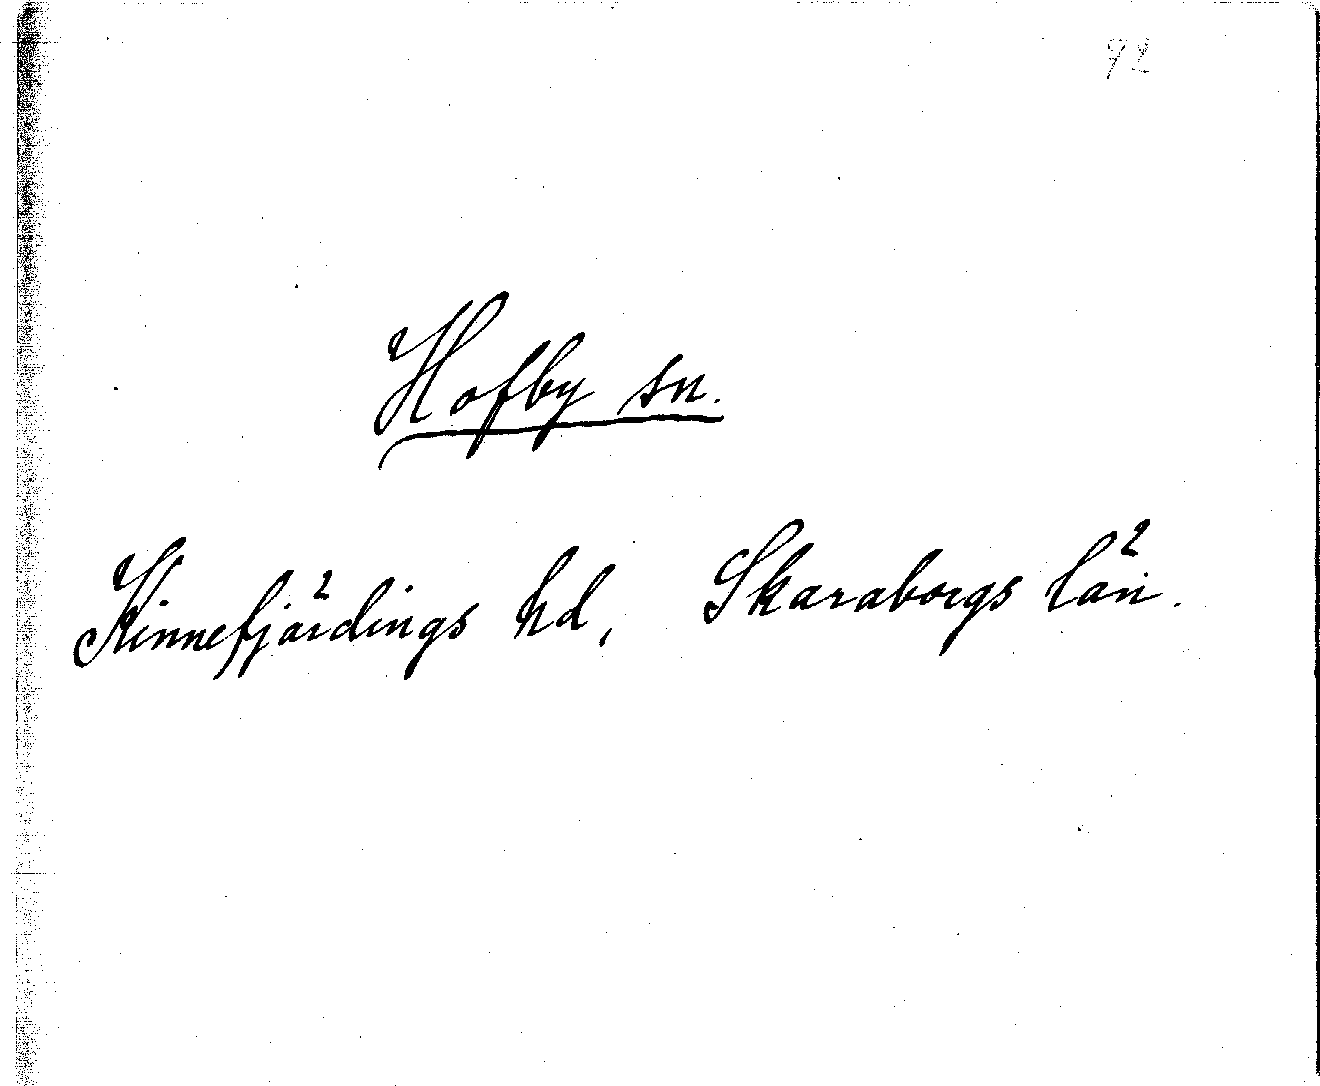 92
Hofby sn.
Kinnefjärdings hd, Skaraborgs län.